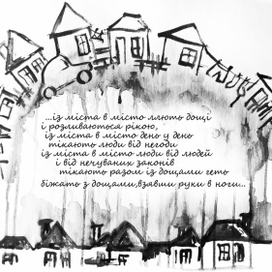 ...із міста в місто ллють дощі
і розливаються рікою,
із міста в місто день у день
тікають люди від негоди
із міста в місто люди від людей
і від нечуваних законів
тікають разом із дощами геть
біжать з дощами,взявши руки в ноги..